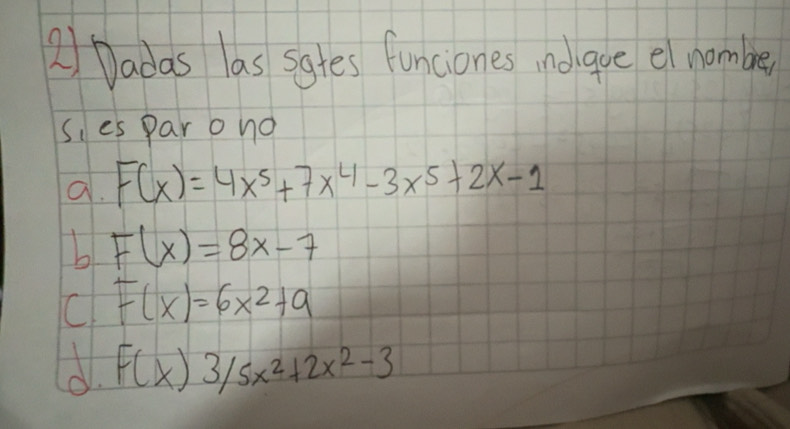 2) Dadas las sgtes funciones indique el nombre,
si es par o no
a. F(x)=4x⁵+7x⁴-3x⁵+2x-1
b F(x)=8x-7
c. F(x)=6x²+9
d. F(x) 3/5x²+2x²-3